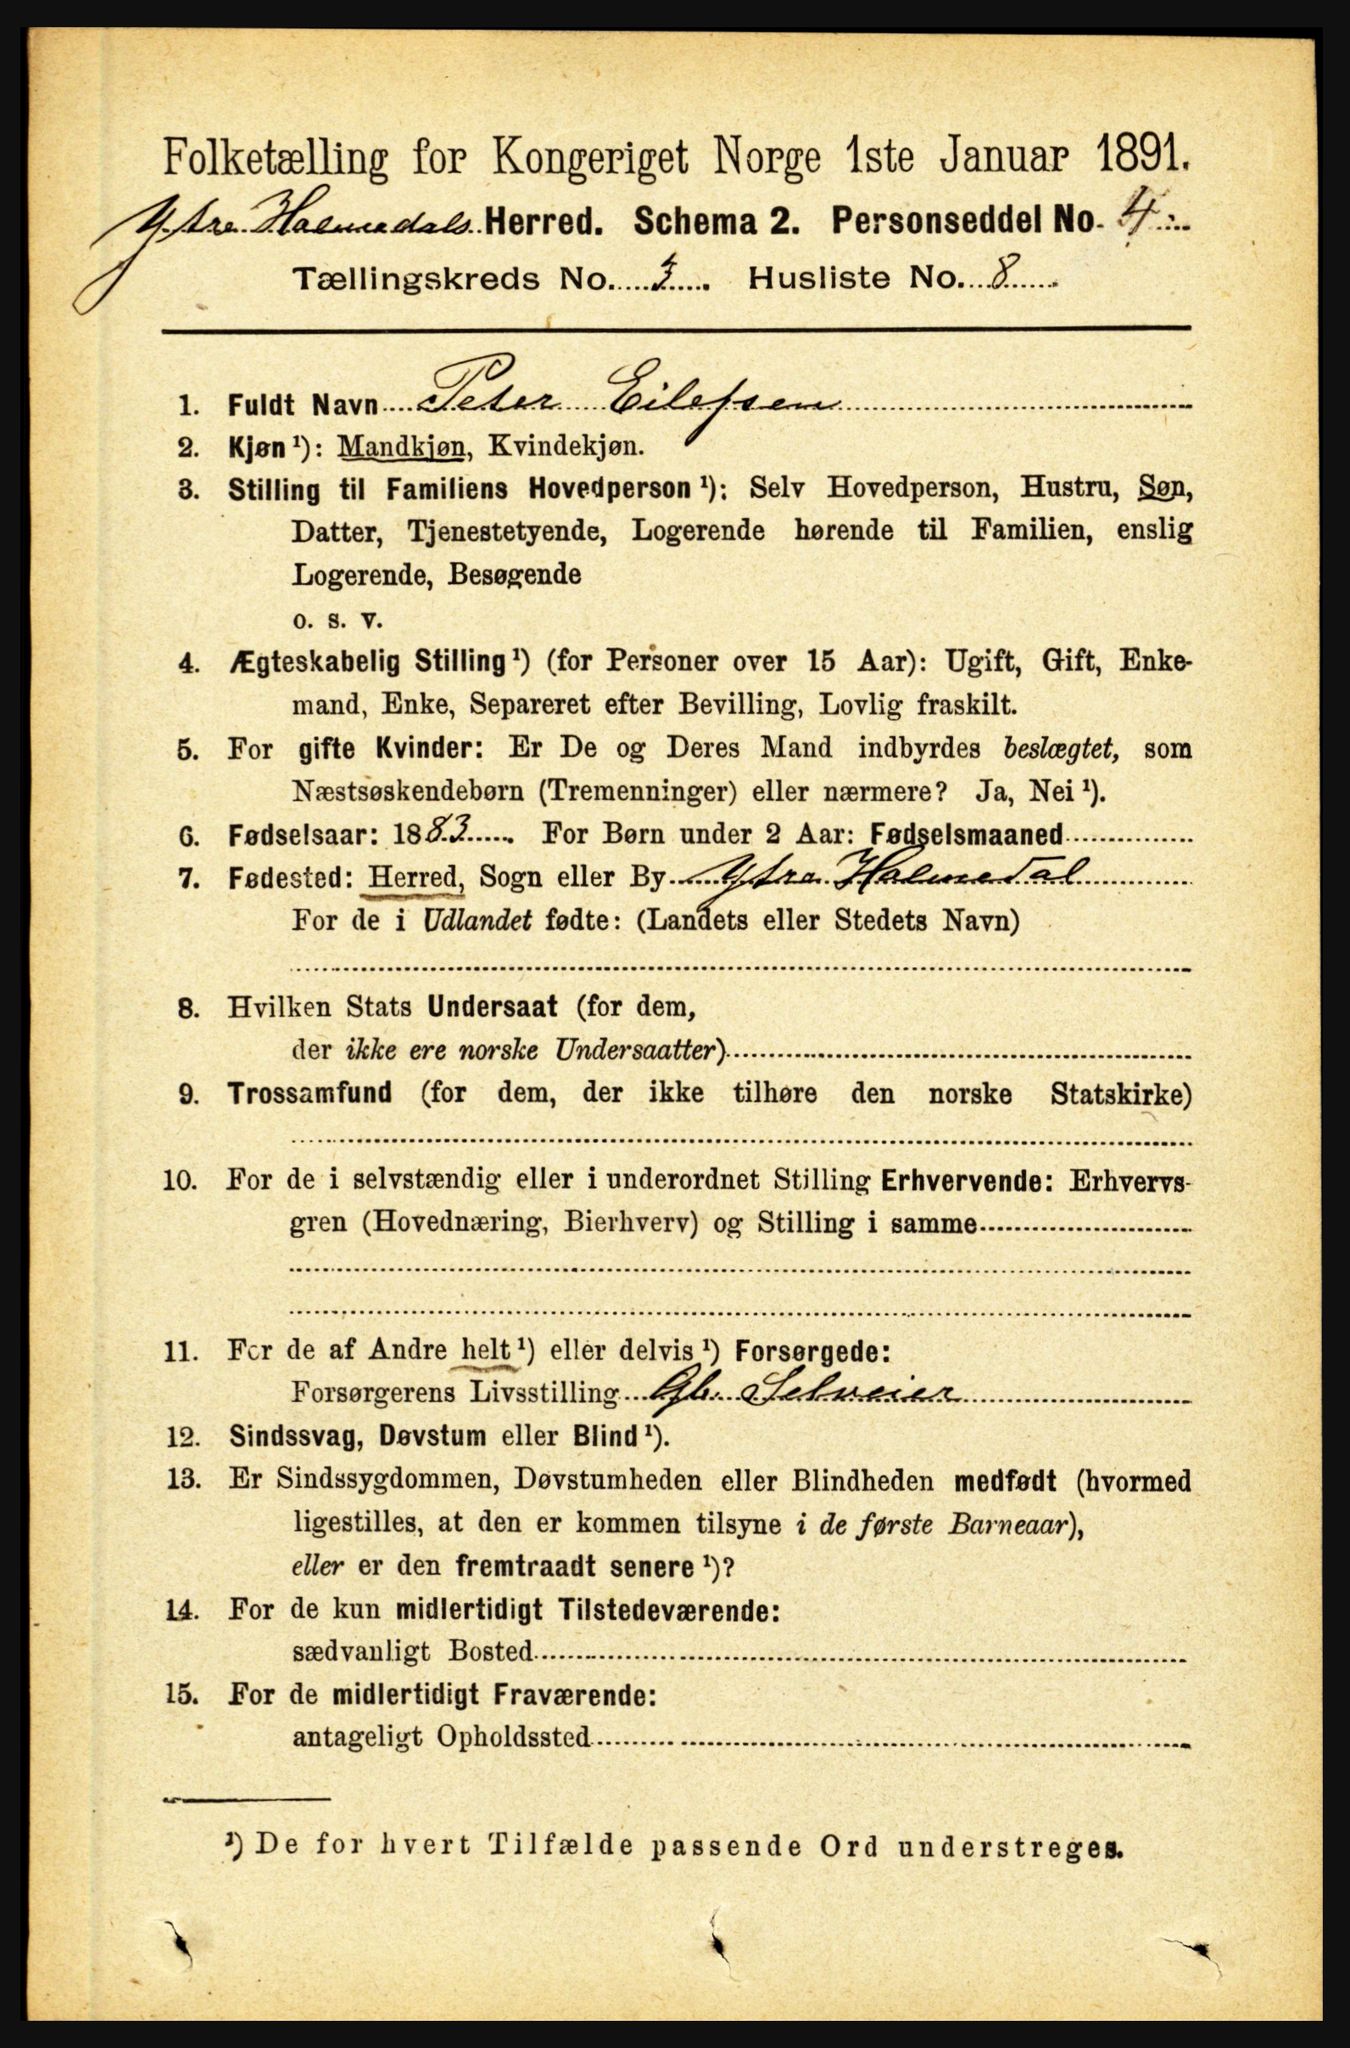 Folketælling for Kongeriget Norge 1ste Januar 1891.
Ytre Holmedals Herred. Schema 2. Personseddel No. 4
Tællingskreds No. 3. Husliste No. 8
1. Fuldt Navn Peter Eilefsen
2. Kjøn ¹): Mandkjøn, Kvindekjøn.
3. Stilling til Familiens Hovedperson ¹): Selv Hovedperson, Hustru, Søn,
Datter, Tjenestetyende, Logerende hørende til Familien, enslig
Logerende, Besøgende
o. s. v.
4. Ægteskabelig Stilling ¹) (for Personer over 15 Aar): Ugift, Gift, Enke-
mand, Enke, Separeret efter Bevilling, Lovlig fraskilt.
5. For gifte Kvinder: Er De og Deres Mand indbyrdes beslægtet, som
Næstsøskendebørn (Tremenninger) eller nærmere? Ja, Nei ¹).
6. Fødselsaar: 1883. For Børn under 2 Aar: Fødselsmaaned
7. Fødested: Herred, Sogn eller By Ytre Holmedal
For de i Udlandet fødte: (Landets eller Stedets Navn)
8. Hvilken Stats Undersaat (for dem,
der ikke ere norske Undersaatter)
9. Trossamfund (for dem, der ikke tilhøre den norske Statskirke)
10. For de i selvstændig eller i underordnet Stilling Erhvervende: Erhvervs-
gren (Hovednæring, Bierhverv) og Stilling i samme
11. For de af Andre helt ¹) eller delvis ¹) Forsørgede:
Forsørgerens Livsstilling Gb. Selveier
12. Sindssvag, Døvstum eller Blind ¹).
13. Er Sindssygdommen, Døvstumheden eller Blindheden medfødt (hvormed
ligestilles, at den er kommen tilsyne i de første Barneaar),
eller er den fremtraadt senere ¹)?
14. For de kun midlertidigt Tilstedeværende:
sædvanligt Bosted
15. For de midlertidigt Fraværende:
antageligt Opholdssted
¹) De for hvert Tilfælde passende Ord understreges.